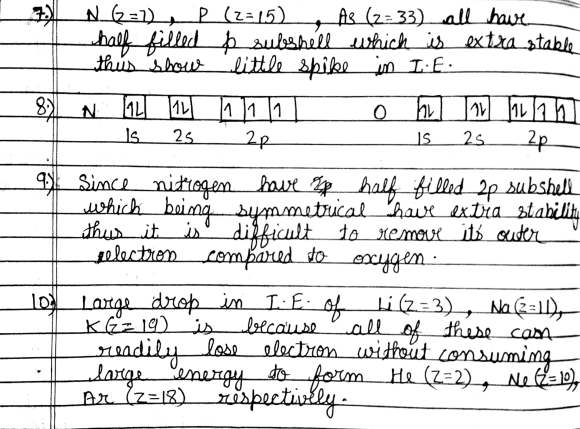 7.) N (Z=7) , P (Z=15) , As (Z=33) all have
half filled p subshell which is extra stable
thus show little spike in I.E.
8.) N 1L 1L 1 1 1 O 1L 1L 1L 1 1
1s 2s 2p 1s 2s 2p
9.) Since nitrogen have half filled 2p subshell
which being symmetrical have extra stability
thus it is difficult to remove its outer
electron compared to oxygen.
10.) Large drop in I.E. of Li (Z=3) , Na (Z=11),
K (Z=19) is because all of these can
readily lose electron without consuming
large energy to form He (Z=2) , Ne (Z=10),
Ar (Z=18) respectively.